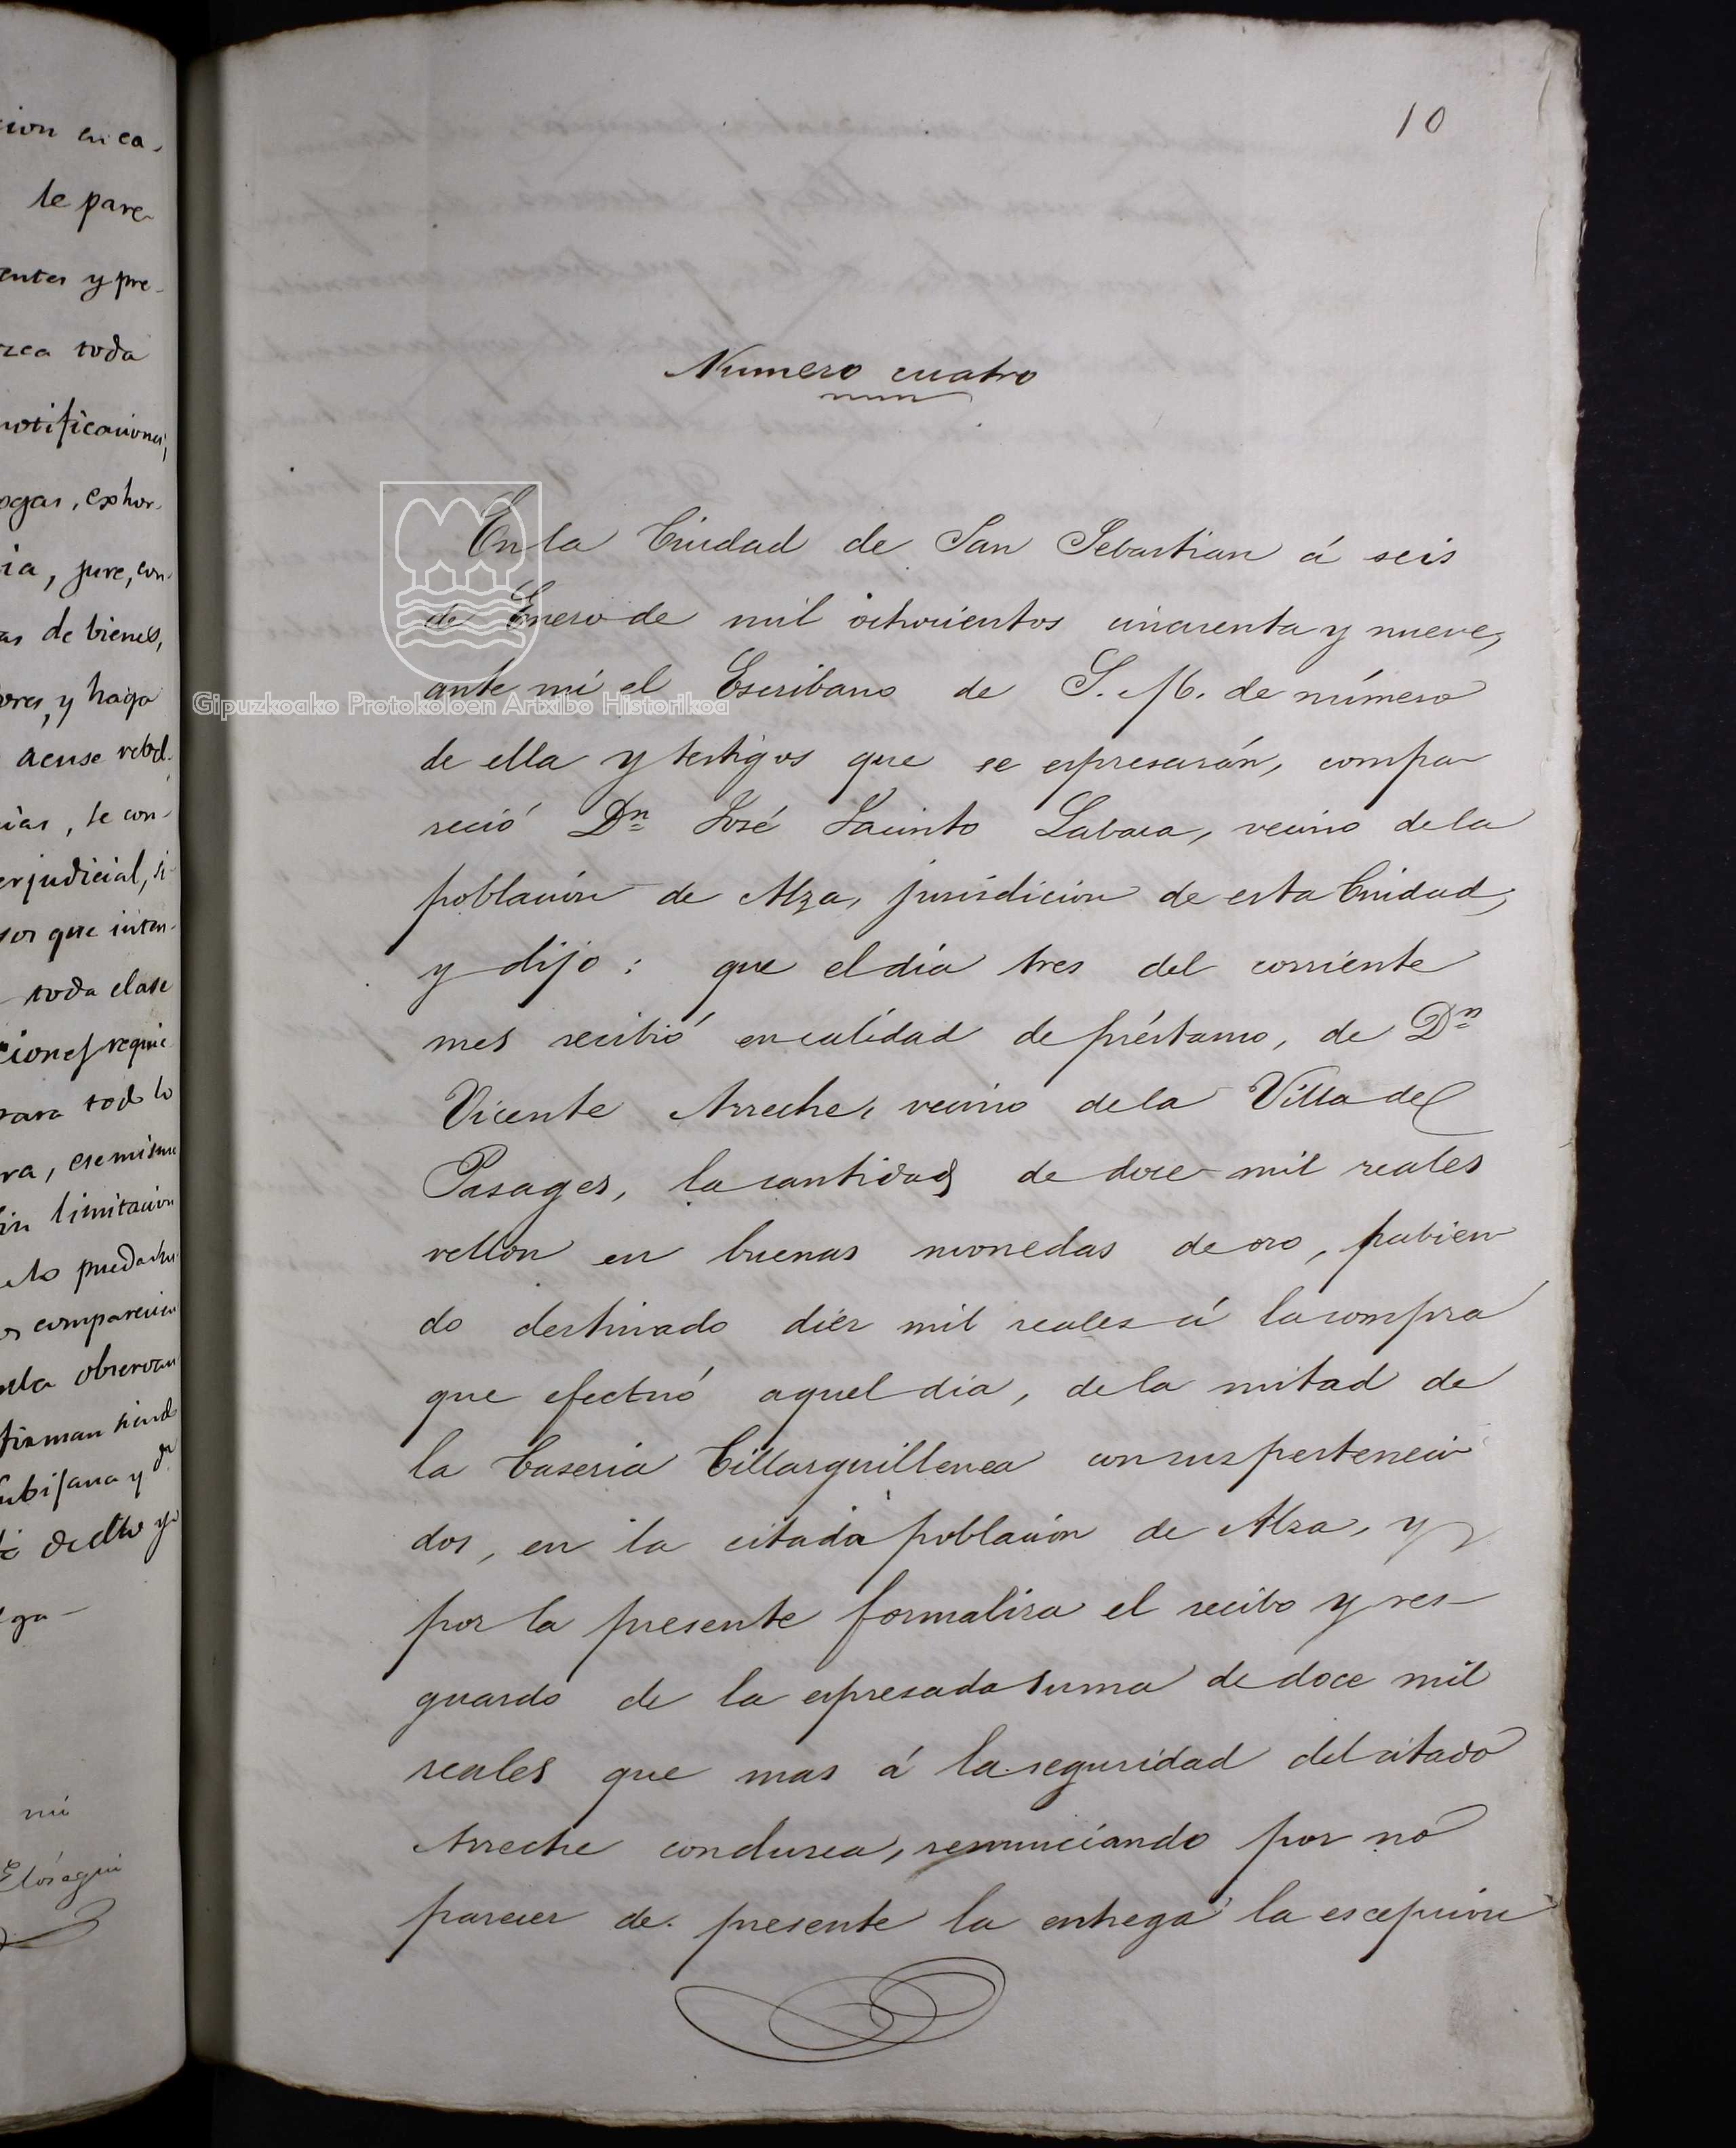 cion en ca-
le pare-
entes y pre-
zca toda
notificaciones,
ogas, exhor-
ia, jure, con-
as de bienes,
ores, y haga
acuse rebel-
ias, le con-
erjudicial, si-
sos que inten-
toda clase
ciones requie
para todo lo
ra, ese mismo
in limitacion
firman siend
mi
Elósegui
10
Numero cuatro
En la Ciudad de San Sebastian á seis
de Enero de mil ochocientos cincuenta y nueve,
ante mi el Escribano de S. M. de número
Gipuzkoako Protokoloen Artxibo Historikoa
de ella y testigos que se espresarán, compa-
reció Dn José Jacinto Labaca, vecino de la
poblacion de Alza, jurisdicion de esta Ciudad,
y dijo: que el dia tres del corriente
mes recibió en calidad de préstamo, de Dn
Vicente Arreche, vecino de la Villa de
Pasages, la cantidad de doce mil reales
vellon en buenas monedas de oro, habien
do destinado diez mil reales á la compra
que efectuó aquel dia, de la mitad de
la Caseria Cillarguillenea con sus perteneci
dos, en la citada poblacion de Alza, y
por la presente formaliza el recibo y res-
guardo de la espresada suma de doce mil
reales que mas á la seguridad del citado
Arreche conduzca, renunciando por no
parecer de presente la entrega la escepcion